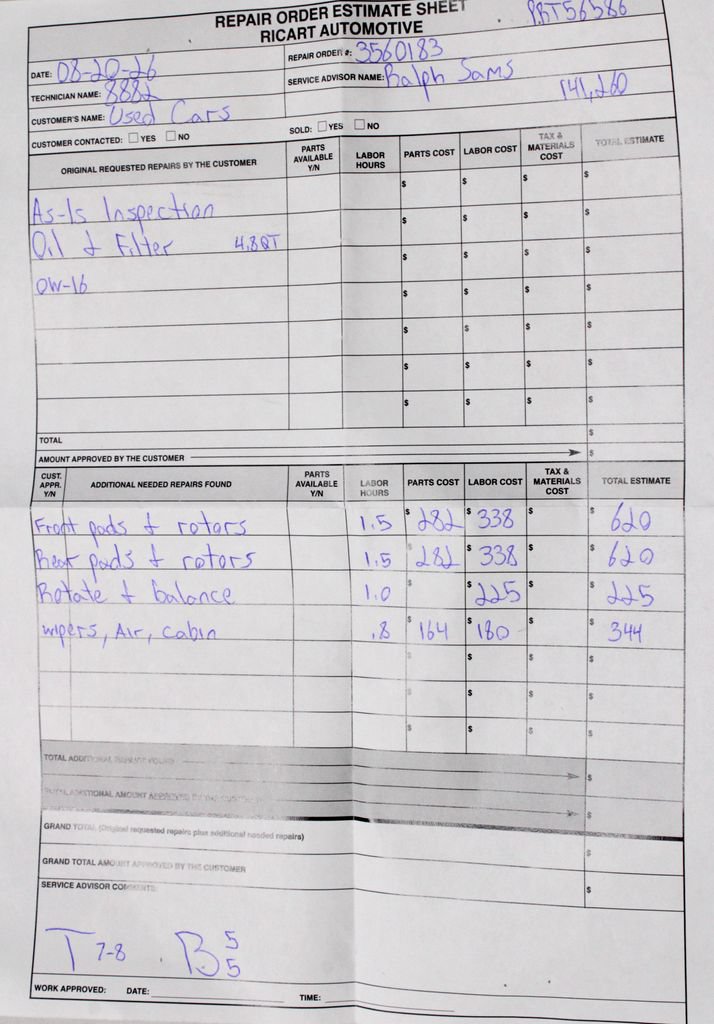 REPAIR ORDER ESTIMATE SHEET
RICART AUTOMOTIVE
PBT56586
DATE: 08-20-26
REPAIR ORDER #: 3560183
TECHNICIAN NAME: 8882
SERVICE ADVISOR NAME: Ralph Sams
141,260
CUSTOMER'S NAME: Used Cars
CUSTOMER CONTACTED: YES NO SOLD: YES NO
ORIGINAL REQUESTED REPAIRS BY THE CUSTOMER PARTS AVAILABLE Y/N LABOR HOURS PARTS COST LABOR COST TAX & MATERIALS COST TOTAL ESTIMATE
$ $ $ $
As-Is Inspection $ $ $ $
Oil & Filter 4.8QT $ $ $ $
0W-16 $ $ $ $
$ $ $ $
$ $ $ $
$ $ $ $
TOTAL $
AMOUNT APPROVED BY THE CUSTOMER $
CUST. APPR. Y/N ADDITIONAL NEEDED REPAIRS FOUND PARTS AVAILABLE Y/N LABOR HOURS PARTS COST LABOR COST TAX & MATERIALS COST TOTAL ESTIMATE
Front pads & rotors 1.5 $ 282 $ 338 $ $ 620
Rear pads & rotors 1.5 $ 282 $ 338 $ $ 620
Rotate & balance 1.0 $ $ 225 $ $ 225
wipers, Air, Cabin .8 $ 164 $ 180 $ $ 344
$ $ $ $
$ $ $ $
$ $ $ $
TOTAL ADDITIONAL REPAIRS FOUND $
TOTAL ADDITIONAL AMOUNT APPROVED BY THE CUSTOMER $
GRAND TOTAL (Original requested repairs plus additional needed repairs) $
GRAND TOTAL AMOUNT APPROVED BY THE CUSTOMER $
SERVICE ADVISOR COMMENTS:
T 7-8 . B 5
5
WORK APPROVED: DATE: TIME: